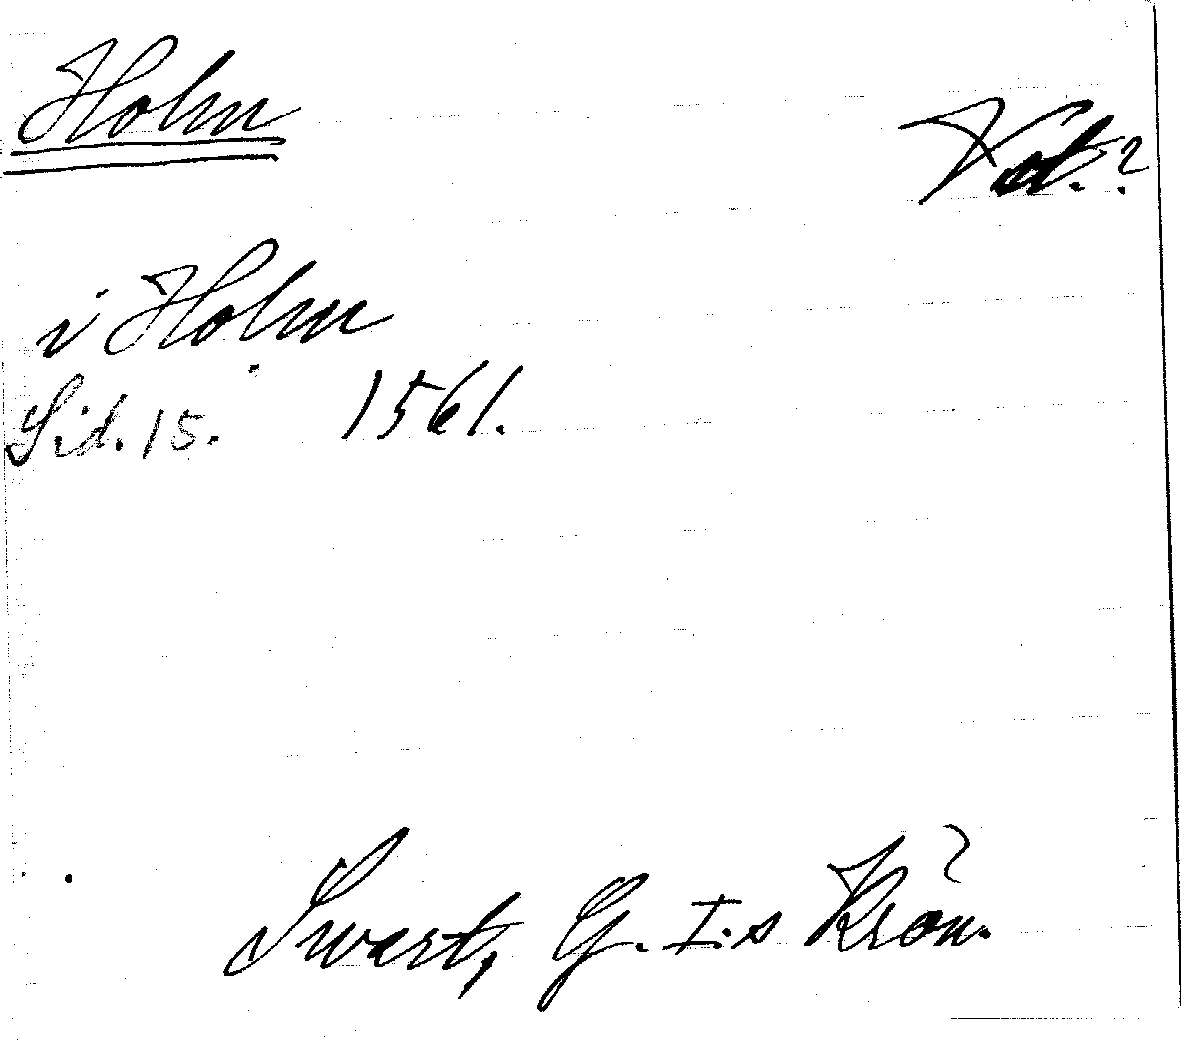 Holm
i Holm
Sid. 15. 1561.
Swart, G. I:s Krön.